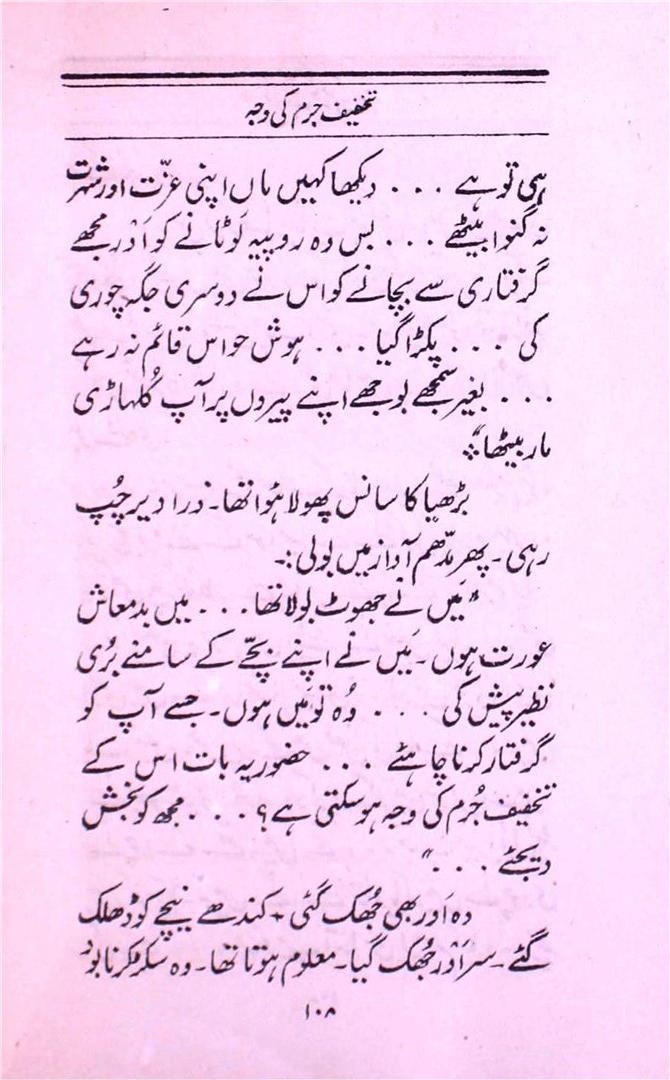 تخفیف جرم کی وجہ
ہی تو ہے ... دیکھا کہیں ماں اپنی عزّت اور شہرت
نہ گنوا بیٹھے ... بس وہ روپیہ لَوٹانے کو اَور مجھے
گرفتاری سے بچانے کو اس نے دوسری جگہ چوری
کی ... پکڑا گیا ... ہوش حواس قائم نہ رہے
... بغیر سمجھے بوجھے اپنے پیروں پر آپ کُلہاڑی
مار بیٹھا"
بڑھیا کا سانس پھولا ہؤا تھا۔ ذرا دیر چُپ
رہی۔ پھر مدّھم آواز میں بولی:۔
"مَیں نے جھوٹ بولا تھا... میں بدمعاش
عورت ہوں۔ مَیں نے اپنے بچّے کے سامنے بُری
نظیر پیش کی ... وُہ تو مَیں ہوں۔ جسے آپ کو
گرفتار کرنا چاہئے ... حضور یہ بات اس کے
تخفیف جُرم کی وجہ ہو سکتی ہے؟ ... مجھ کو بخش
دیجئے ..."
وہ اَور بھی جُھک گئی + کندھے نیچے کو ڈھلک
گئے۔ سر اَور جُھک گیا۔ معلوم ہوتا تھا۔ وہ سکڑ سکڑ کر نابود
۱۰۸